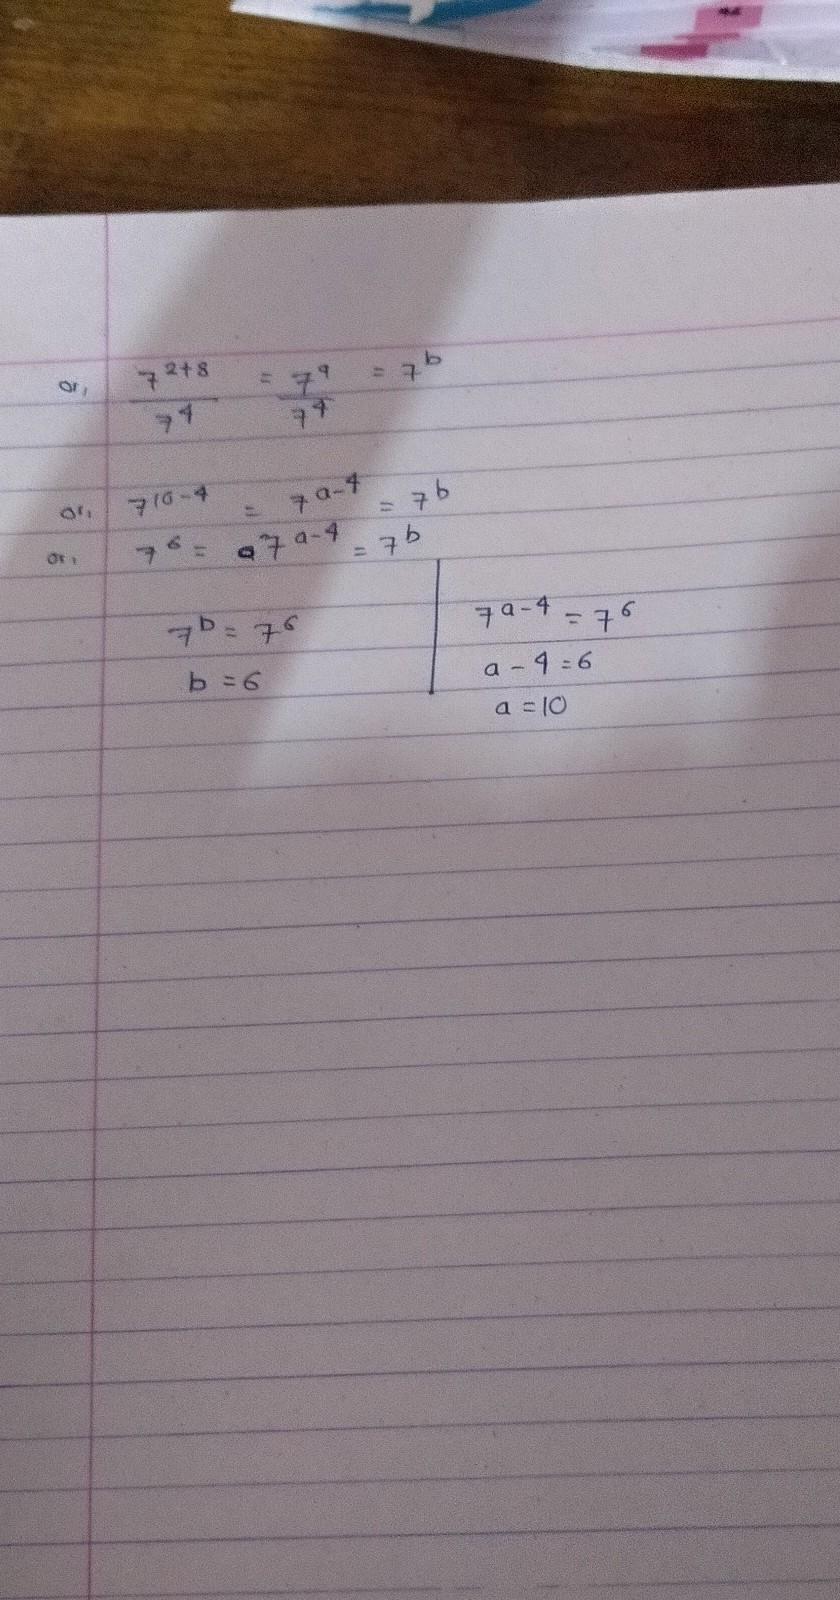 or, 7^{2+8}/7^4 = 7^a/7^4 = 7^b
or, 7^{10-4} = 7^{a-4} = 7^b
or, 7^6 = 7^{a-4} = 7^b
7^b = 7^6
b = 6
7^{a-4} = 7^6
a - 4 = 6
a = 10